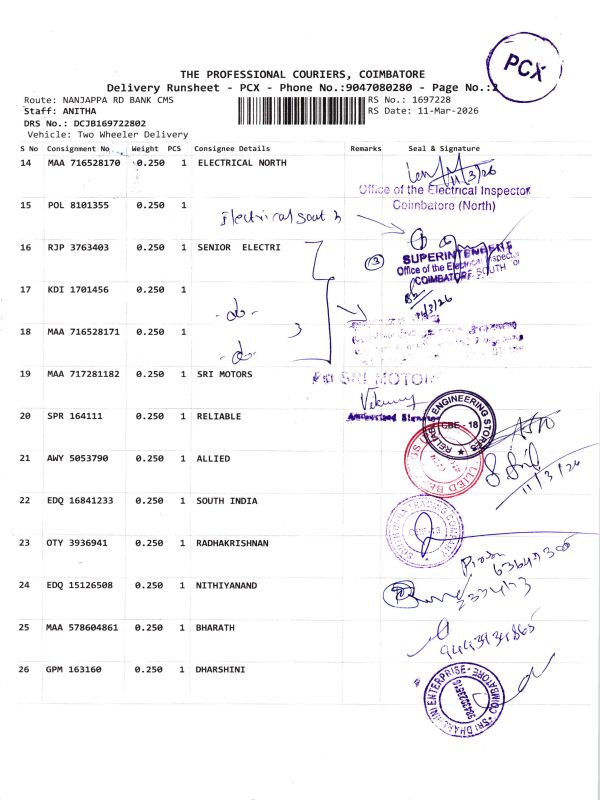 PCX
THE PROFESSIONAL COURIERS, COIMBATORE
Delivery Runsheet - PCX - Phone No.:9047080280 - Page No.:2
Route: NANJAPPA RD BANK CMS
RS No.: 1697228
Staff: ANITHA
RS Date: 11-Mar-2026
DRS No.: DCJB169722802
Vehicle: Two Wheeler Delivery
S No Consignment No Weight PCS Consignee Details Remarks Seal & Signature
14 MAA 716528170 0.250 1 ELECTRICAL NORTH
11/3/26
Office of the Electrical Inspector
Coimbatore (North)
15 POL 8101355 0.250 1
Electrical South
16 RJP 3763403 0.250 1 SENIOR ELECTRI
3
SUPERINTENDENT
Office of the Electrical Inspector
COIMBATORE SOUTH
17 KDI 1701456 0.250 1
11/3/26
-do-
18 MAA 716528171 0.250 1
3
-do-
19 MAA 717281182 0.250 1 SRI MOTORS
For SRI MOTORS
Authorised Signatory
20 SPR 164111 0.250 1 RELIABLE
RELIABLE ENGINEERING STORES
CBE - 18
21 AWY 5053790 0.250 1 ALLIED
11/3/26
22 EDQ 16841233 0.250 1 SOUTH INDIA
23 OTY 3936941 0.250 1 RADHAKRISHNAN
24 EDQ 15126508 0.250 1 NITHIYANAND
25 MAA 578604861 0.250 1 BHARATH
26 GPM 163160 0.250 1 DHARSHINI
SRI DHARSHINI ENTERPRISE - COIMBATORE